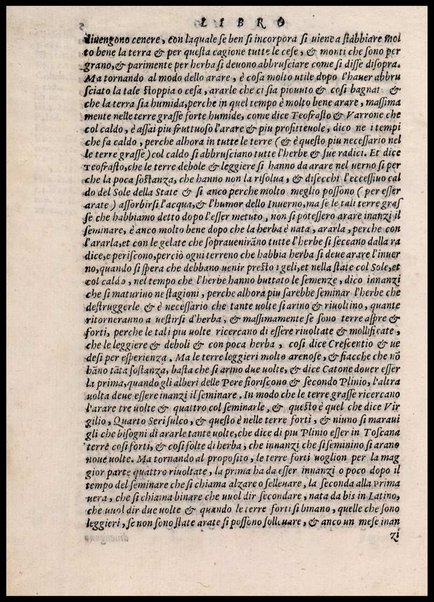 LIBRO
diuengono cenere, con laquale se ben si incorpora si uiene a stabbiare mol
to bene la terra & per questa cagione tutte le cese, & monti che sono per
grano, & parimente per herba si deuono abbrusciare come si disse disopra.
Ma tornando al modo dello arare, è cosa molto utile dopo l'hauer abbru
sciato la tale stoppia o cesa, ararle che ci sia piouuto & cosi bagnat &
che la terra sia humida, perche in quel tempo è molto bene arare, massima
mente nelle terre grasse forte humide, come dice Teofrasto & Varrone che
col caldo, è assai piu fruttuoso l'arare & piu profitteuole, dico ne i tempi
che fa caldo, perche alhora in tutte le terre (& è questo piu necessario nel
le terre grasse) col caldo si abbrusciano tutte l'herbe & sue radici. Et dice
Teofrasto, che le terre debole & leggiere si hanno da arare nel uerno si per
che la poca sostanza, che hanno non la risolua, & disecchi l'eccessiuo cal
do del Sole della State & si anco perche molto meglio possono (per esser
arate) assorbirsi l'acqua, & l'humor dello Inuerno, ma se le tali terre gras
se che habbiamo detto dopo l'esser metuto, non si potessero arare inanzi il
seminare, è anco molto bene dopo che la herba è nata, ararla, perche con
l'ararla, et con le gelate che soprauenirãno tutte l'herbe si seccano dalla ra
dice, e periscono, perciò ogni terreno che habbia herba si deue arare l'inuer
no, quando si spera che debbano uenir presto i geli, et nella state col Sole, et
col caldo, nel tempo che l'herbe hanno buttato le semenze, dico innanzi
che si maturino ne stagioni, perche alhora piu sarebbe seminar l'herbe che
destruggerle & è necessario che tante uolte si arino & riuoltino, quante
ritorneranno a uestirsi d'herba, & massimamente se sono terre aspre &
forti, perche le tali piu uolte ricercano di essere riuoltate & mollificate,
che le leggiere & deboli & con poca herba, cosi dice Crescentio & ue
desi per esperienza. Ma le terre leggieri molto arenose, & fiacche che nõ
hãno tãta sostanza, basta che si arino due uolte, & dice Catone douer esser
la prima, quando gli alberi delle Pere fioriscono & secondo Plinio, l'altra
uolta deue essere inanzi il seminare. In modo che le terre grasse ricercano
l'arare tre uolte & quattro col seminarle, & questo è quel che dice Vir
gilio, Quarto Seri sulco, & questo è nelle terre forti, & niuno si maraui
gli che bisogni di ararle tante uolte, che dice di piu Plinio esser in Toscane
terre cosi forti, & cosi folte di herba, che innanzi che si seminino si arano
noue uolte. Ma tornando al proposito, le terre forti uoglion per la mag
gior parte quattro riuoltate, la prima ha da esser inuanzi o poco dopo il
tempo del seminare che si chiama alzare o solleuare, la seconda alla prima
uera, che si chiama binare che uuol dir secondare, nata da bis in Latino,
che uuol dir due uolte & quando le terre forti si binano, quelle che sono
leggieri, se non sono state arate si possono solleuare, & anco un mese inan
zi